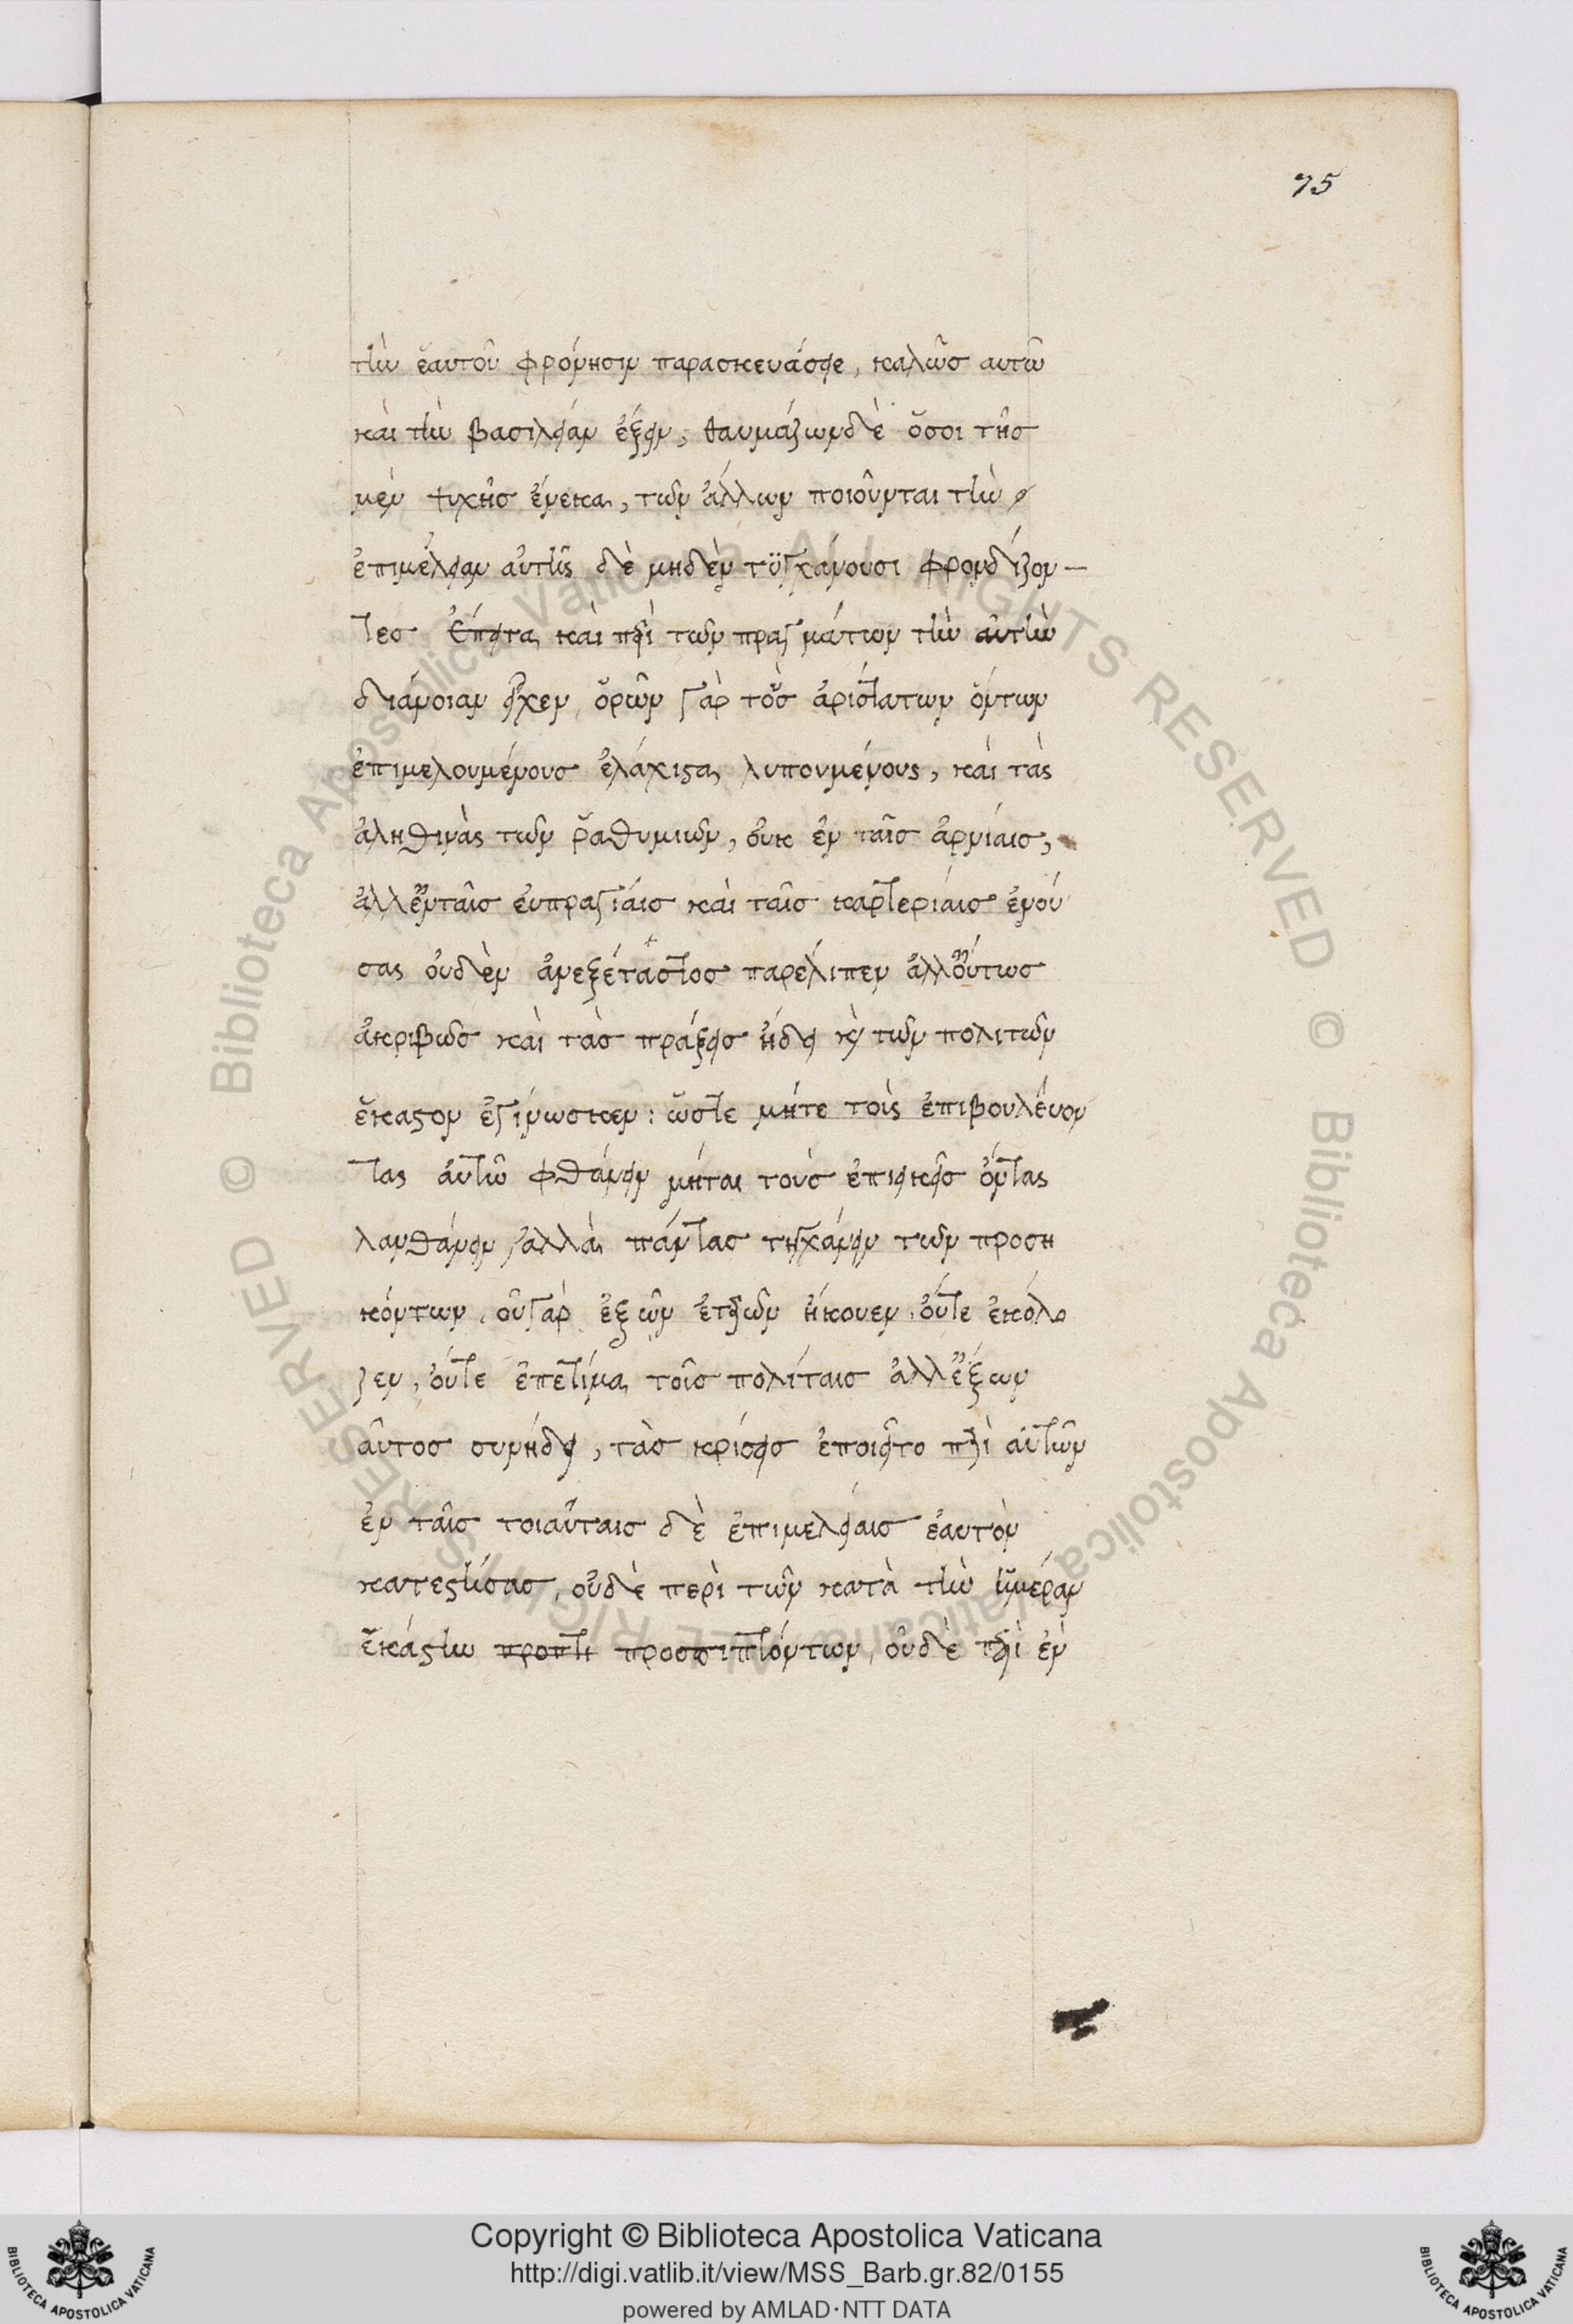 75
τὴν ἑαυτοῦ φρόνησιν παρασκευάσειε, καλῶσ αυτῶ
καὶ τὴν βασιλείαν ἕξειν, θαυμάζων δὲ ὅσοι τῆσ
μὲν τυχῆσ ἕνεκα, τῶν ἄλλων ποιοῦνται τὴν
ἐπιμέλειαν αὐτῆς δὲ μηδὲν τϋγχάνουσι φρονδίζον-
τεσ ἔπειτα καὶ περὶ τῶν πραγμάτων τὴν αὐτὴν
διάνοιαν εἶχεν, ὁρῶν γὰρ τοὺσ ἀρίστατων ὄντων
ἐπιμελουμένουσ ἐλάχιστα λυπουμένους, καὶ τὰς
ἀληθινὰς τῶν ῥαθυμιῶν, οὐκ ἐν ταῖσ ἀργίαισ,
ἀλλ' ἐν ταῖσ εὐπραγίαισ καὶ ταῖσ καρτερίαισ ἐνού
σας οὐδὲν ἀνεξέταστοσ παρέλιπεν ἀλλ' οὕτωσ
ἀκριβῶσ καὶ τὰσ πράξεισ ἤδει κὴ τῶν πολιτῶν
ἕκαστον ἐγίνωσκεν: ὥστε μήτε τοὶς ἐπιβουλεύον
τας ἀυτῶ φθάνειν μήται τοὺσ ἐπιεικεῖσ ὄντας
λανθάνειν, ἀλλὰ πάντασ τηγχάνειν τῶν προση
κόντων, οὐ γὰρ ἐξ ὧν ἑτέρων ἤκουεν, οὔτε ἐκόλα
ζεν, ὄυτε ἐπετίμα τοῖσ πολίταισ ἀλλ' ἐξ ὧν
αὐτοσ συνήδει, τὰσ κρίσεισ ἐποιεῖτο περὶ αὐτῶν
ἐν ταῖσ τοιαύταισ δὲ ἐπιμελείαισ ἑαυτὸν
κατεστήσασ, οὐδὲ περὶ τῶν κατὰ τὴν ἡμέραν
ἑκάστην προπτι προσπιπτόντων, οὐδὲ περὶ ἓν
Copyright © Biblioteca Apostolica Vaticana
http://digi.vatlib.it/view/MSS_Barb.gr.82/0155
powered by AMLAD·NTT DATA